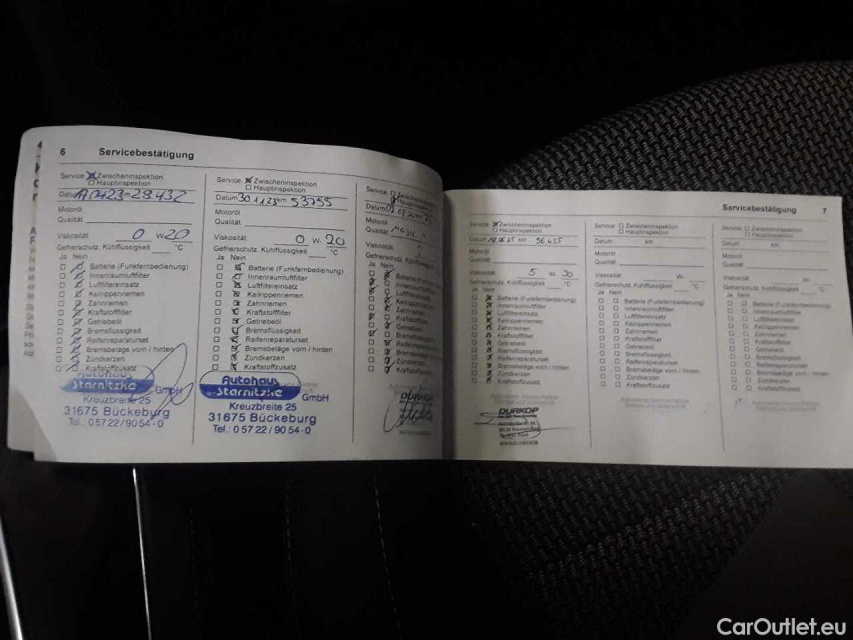 6 Servicebestätigung
Service Zwischeninspektion
Hauptinspektion
Datum 28.432
Motoröl
Qualität
Viskosität 0 W 20
Gefrierschutz, Kühlflüssigkeit °C
Ja Nein
Batterie (Funkfernbedienung)
Innenraumluftfilter
Luftfiltereinsatz
Keilrippenriemen
Zahnriemen
Kraftstofffilter
Getriebeöl
Bremsflüssigkeit
Reifenreparaturset
Bremsbeläge vorn / hinten
Zündkerzen
Kraftstoffzusatz
Autohaus
Starnitzke GmbH
Kreuzbreite 25
31675 Bückeburg
Tel.: 0 57 22 / 90 54 - 0
Service Zwischeninspektion
Hauptinspektion
Datum 30.11.23 km 53755
Motoröl
Qualität
Viskosität 0 W 20
Gefrierschutz, Kühlflüssigkeit °C
Ja Nein
Batterie (Funkfernbedienung)
Innenraumluftfilter
Luftfiltereinsatz
Keilrippenriemen
Zahnriemen
Kraftstofffilter
Getriebeöl
Bremsflüssigkeit
Reifenreparaturset
Bremsbeläge vorn / hinten
Zündkerzen
Kraftstoffzusatz
Autohaus
Starnitzke GmbH
Kreuzbreite 25
31675 Bückeburg
Tel.: 0 57 22 / 90 54 - 0
Service Zwischeninspektion
Hauptinspektion
Datum
Motoröl
Qualität
Viskosität
Gefrierschutz, Kühlflüssigkeit
Ja Nein
Batterie
Innenraumluftfilter
Luftfiltereinsatz
Keilrippenriemen
Zahnriemen
Kraftstofffilter
Getriebeöl
Bremsflüssigkeit
Reifenreparaturset
Bremsbeläge vorn / hinten
Zündkerzen
Kraftstoffzusatz
DÜRKOP
Servicebestätigung 7
Service Zwischeninspektion
Hauptinspektion
Datum km 96455
Motoröl
Qualität
Viskosität 5 W 30
Gefrierschutz, Kühlflüssigkeit °C
Ja Nein
Batterie (Funkfernbedienung)
Innenraumluftfilter
Luftfiltereinsatz
Keilrippenriemen
Zahnriemen
Kraftstofffilter
Getriebeöl
Bremsflüssigkeit
Reifenreparaturset
Bremsbeläge vorn / hinten
Zündkerzen
Kraftstoffzusatz
DÜRKOP
Service Zwischeninspektion
Hauptinspektion
Datum km
Motoröl
Qualität
Viskosität W
Gefrierschutz, Kühlflüssigkeit °C
Ja Nein
Batterie (Funkfernbedienung)
Innenraumluftfilter
Luftfiltereinsatz
Keilrippenriemen
Zahnriemen
Kraftstofffilter
Getriebeöl
Bremsflüssigkeit
Reifenreparaturset
Bremsbeläge vorn / hinten
Zündkerzen
Kraftstoffzusatz
Service Zwischeninspektion
Hauptinspektion
Datum km
Motoröl
Qualität
Viskosität W
Gefrierschutz, Kühlflüssigkeit °C
Ja Nein
Batterie (Funkfernbedienung)
Innenraumluftfilter
Luftfiltereinsatz
Keilrippenriemen
Zahnriemen
Kraftstofffilter
Getriebeöl
Bremsflüssigkeit
Reifenreparaturset
Bremsbeläge vorn / hinten
Zündkerzen
Kraftstoffzusatz
CarOutlet.eu